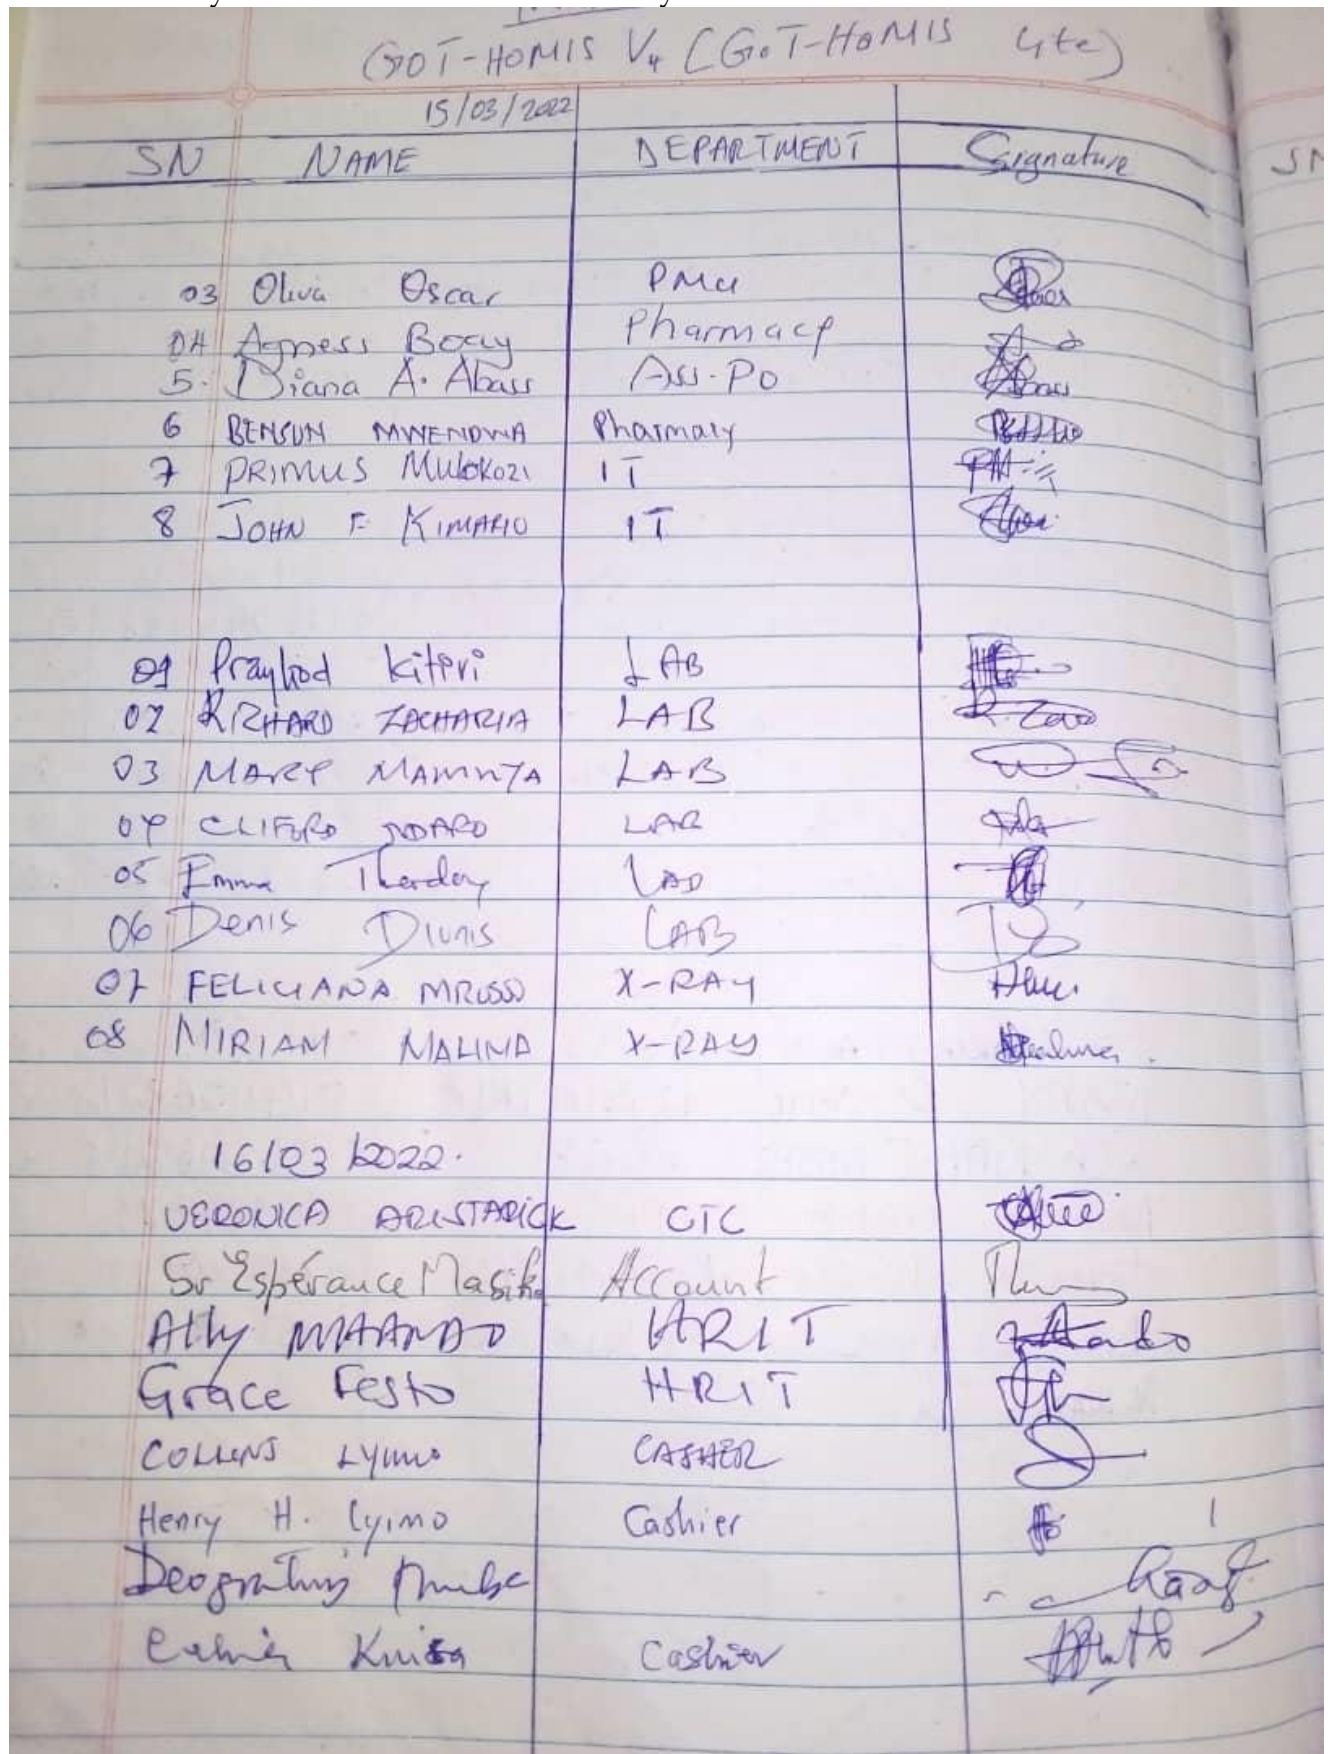 GOT-HOMIS V4 (GoT-HOMIS Lite)
15/03/2022
SN NAME DEPARTMENT Signature SN
03 Oliva Oscar PMU
04 Agness Boay Pharmacy
5. Diana A. Abass Ass. Po
6 BENSUN MWENDWA Pharmacy
7 PRIMUS MULOKOZI IT
8 JOHN F. KIMARIO IT
01 PrayGod Kitivi LAB
02 RICHARD ZACHARIA LAB
03 MARY MAMUYA LAB
04 CLIFORD NDARO LAB
05 Emma LAB
06 Denis Dionis LAB
07 FELICIANA MROSSO X-RAY
08 MIRIAM MALIMA X-RAY
16/03/2022.
VERONICA ARISTARICK CTC
Sr Espérance Masika Account
Ally HRIT
Grace Festo HRIT
COLLINS Lyimo CASHIER
Henry H. Lyimo Cashier
Deogratius
Cashier